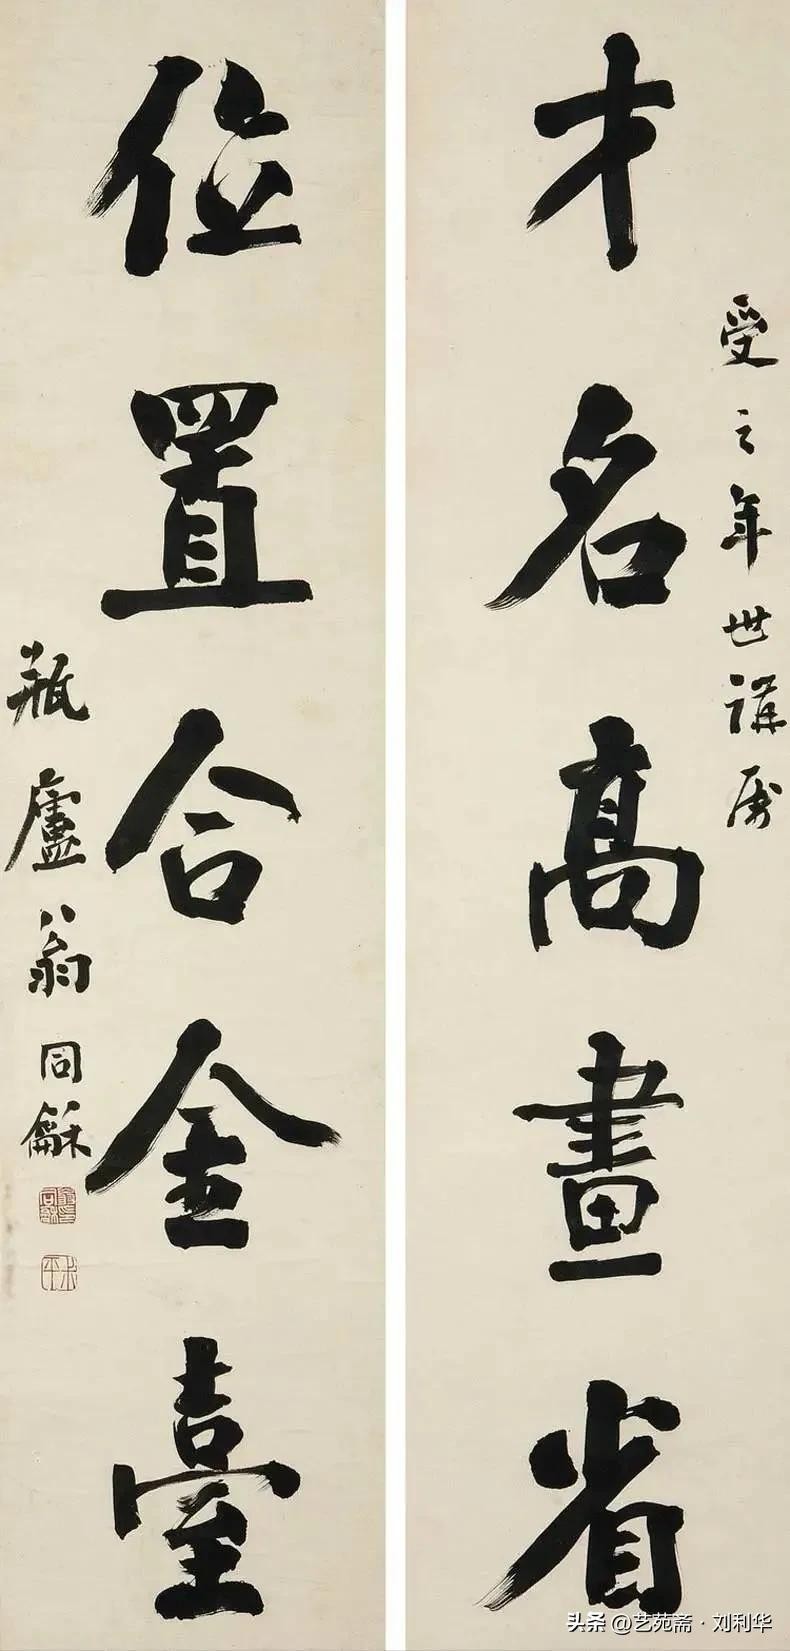 才名高畫省
受之年世講屬
位置合金臺
瓶廬翁同龢
頭条 @艺苑斋·刘利华